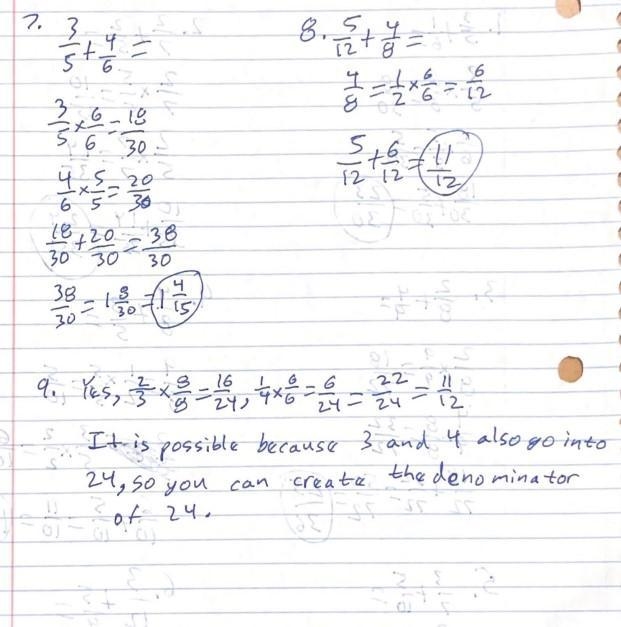 7. 3/5 + 4/6 =
3/5 × 6/6 = 18/30
4/6 × 5/5 = 20/30
18/30 + 20/30 = 38/30
38/30 = 1 8/30 = 1 4/15
8. 5/12 + 4/8 =
4/8 = 1/2 × 6/6 = 6/12
5/12 + 6/12 = 11/12
9. Yes, 2/3 × 8/8 = 16/24, 1/4 × 6/6 = 6/24 = 22/24 = 11/12
It is possible because 3 and 4 also go into
24, so you can create the denominator
of 24.